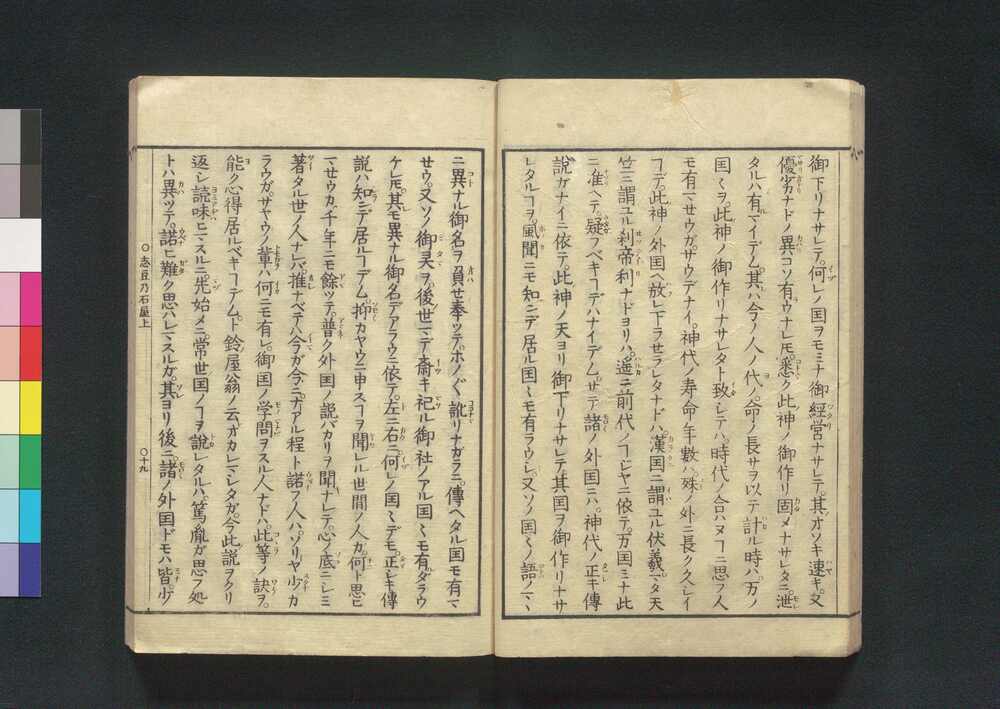 御下リナサレテ。何レノ国ヲモミナ御經営ナサレテ。其オソキ速キ。又
優劣ナドノ異コソ有ウナレ𪜈。悉ク此神ノ御作リ固メナサレタニ。泄
タルハ有マイデム。其ハ今ノ人ノ代ノ。命ノ長サヲ以テ計ル時ハ。万ノ
国〻ヲ。此神ノ御作リナサレタト致シテハ。時代ノ合ハヌヿニ思フ人
モ有マセウガ。サウデナイ。神代ノ寿命ノ年數ハ。殊ノ外ニ長ク久シイ
ヿデ。此神ノ外国ヘ放レ下ラセラレタナドハ。漢国ニ謂ユル伏羲。マタ天
竺ニ謂ユル刹帝利ナドヨリハ。遥ニ前代ノヿジヤニ依テ。万国ミナ此
ニ准ヘテ。疑フベキヿデハナイデム。サテ諸ノ外国ニハ。神代ノ正キ傳
説ガナイニ依テ。此神ノ天ヨリ御下リナサレテ。其国ヲ御作リナサ
レタルヿヲ。風聞ニモ知ンデ居ル国〻モ有ラウシ。又ソノ国〻ノ語ノマヽ
ニ異ナル御名ヲ負セ奉ツテ。ホノ〴〵訛リナガラニ。傳ヘタル国モ有マ
セウ。又ソノ御灵ヲ。後世マデ斎キ祀ル御社ノアル国〻モ有ダラウ
ケレ𪜈。其モ異ナル御名デアラウニ依テ。左ニ右ニ何レノ国〻デモ。正シキ傳
説ハ知ンデ居ルヿデム。抑カヤウニ申スヿヲ聞レル世間ノ人ガ。何ト思ヒ
マセウカ。千年ニモ餘ツテ。普ク外国ノ説バカリヲ聞ナレテ。心ノ底ニシミ
著タル世ノ人ナレバ。推ナベテハ今ガ今ニ。ガアル程ト諾フ人ハ。ソリヤ少カ
ラウガ。サヤウノ輩ハ何ニモ有レ。御国ノ学問ヲスル人ナドハ。此等ノ訣ヲ。
能ク心得居ルベキヿデム。ト鈴ノ屋翁ノ云オカレマシタガ。今此説ヲクリ
返シ読味ヒマスルニ。先始メニ。常世国ノヿヲ説レタルハ。篤胤ガ思フ処
トハ異ツテ。諾ヒ難ク思ハレマスルガ。其ヨリ後ニ。諸ノ外国ドモハ皆。少
〇志豆乃石屋上
〇十九